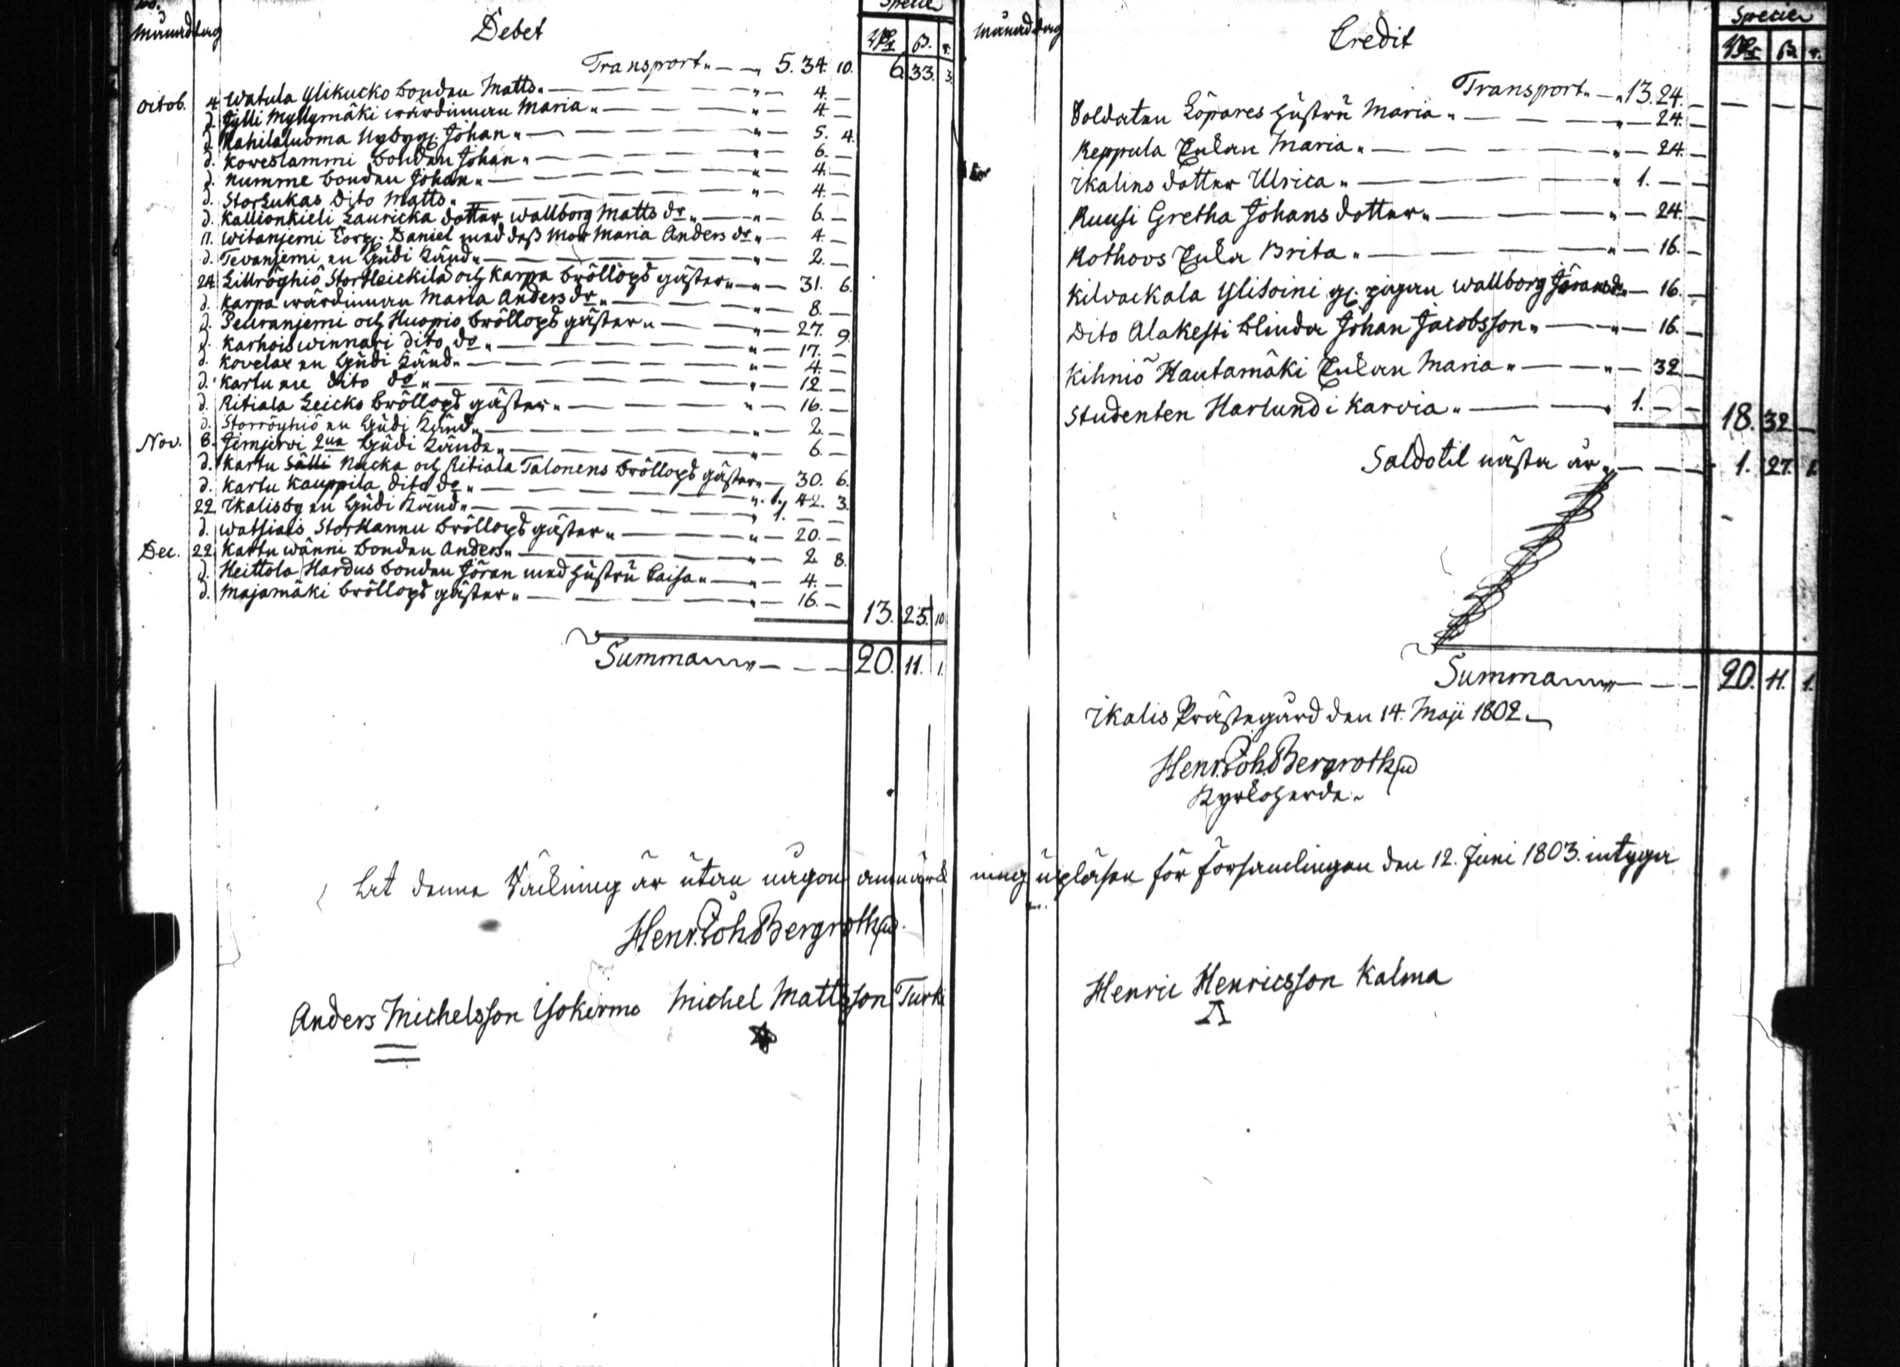 Debet
Månad dag
Specie
Rdr ß. r.
Transport 5. 34. 10. 6. 33. 3.
Octob. 4. Watula Ylikucko bonden Matts 4.
d. Jylli Myllymäki wärdinnan Maria 4.
d. Kahilaluoma Nybygg. Johan 5. 4.
d. Koveslammi bonden Johan 6.
d. Numme bonden Johan 4.
d. Storlukas dito Matts 4.
d. Kallionkieli Lauricka dotter Wallborg Matts dr 6.
11. Witanjemi Torp. Daniel med dess mor Maria Anders dr 4.
d. Tevanjemi en Gudi Känd 2.
24. Lillröyhiö, StorHeickilä och Karpa bröllops gäster 31. 6.
d. Karpa wärdinnan Maria Anders dr 8.
d. Seuranjemi och Kuopio bröllops gäster 27. 9.
d. Karhois winnari dito do 17.
d. Kovelax en Gudi Känd 4.
d. Kartu en dito do 12.
d. Ritiala Leicko bröllops gäster 16.
d. Storröyhiö en Gudi Känd 2.
Nov. 8. Jemjervi 2ne Gudi Kända 6.
d. Kartu Sälli Nucka och Ritiala Talonens bröllops gäster 30. 6.
d. Kartu Kauppila dito do 1. 42. 3.
22. Ikalisby en Gudi Känd 1.
d. Watsiais StorHannu bröllops gäster 20.
Dec. 22. Kartu wänni bonden Anders 2. 8.
d. Heittola Hardus bonden Jöran med hustru Caisa 4.
d. Majamäki bröllops gäster 16.
13. 25. 10.
Summa 20. 11. 1.
Credit
Månad dag
Specie
Rdr ß. r.
Transport 13. 24.
Soldaten Löpares hustru Maria 24.
Keppula Enkan Maria 24.
Ikalins dotter Ulrica 1.
Ruusi Gretha Johans dotter 24.
Rothovs Enka Brita 16.
Kilvackala Ylisoini gl. pigan Wallborg Jörans dr 16.
Dito Alakesti blinda Johan Jacobsson 16.
Kihniö Hautamäki Enkan Maria 32.
Studenten Harlund i Karvia 1.
18. 32.
Saldo til nästa år 1. 27. 1.
Summa 20. 11. 1.
Ikalis Prästegård den 14. Maji 1802
Henr. Joh. Bergroth
Kyrkoherde
At denna Räkning är utan någon anmärkning upläsen för församlingen den 12. Juni 1803. intyga
Henr. Joh. Bergroth
Anders Michelsson Isokirmo Michel Mattsson Turki
Henric Henricsson Kalma